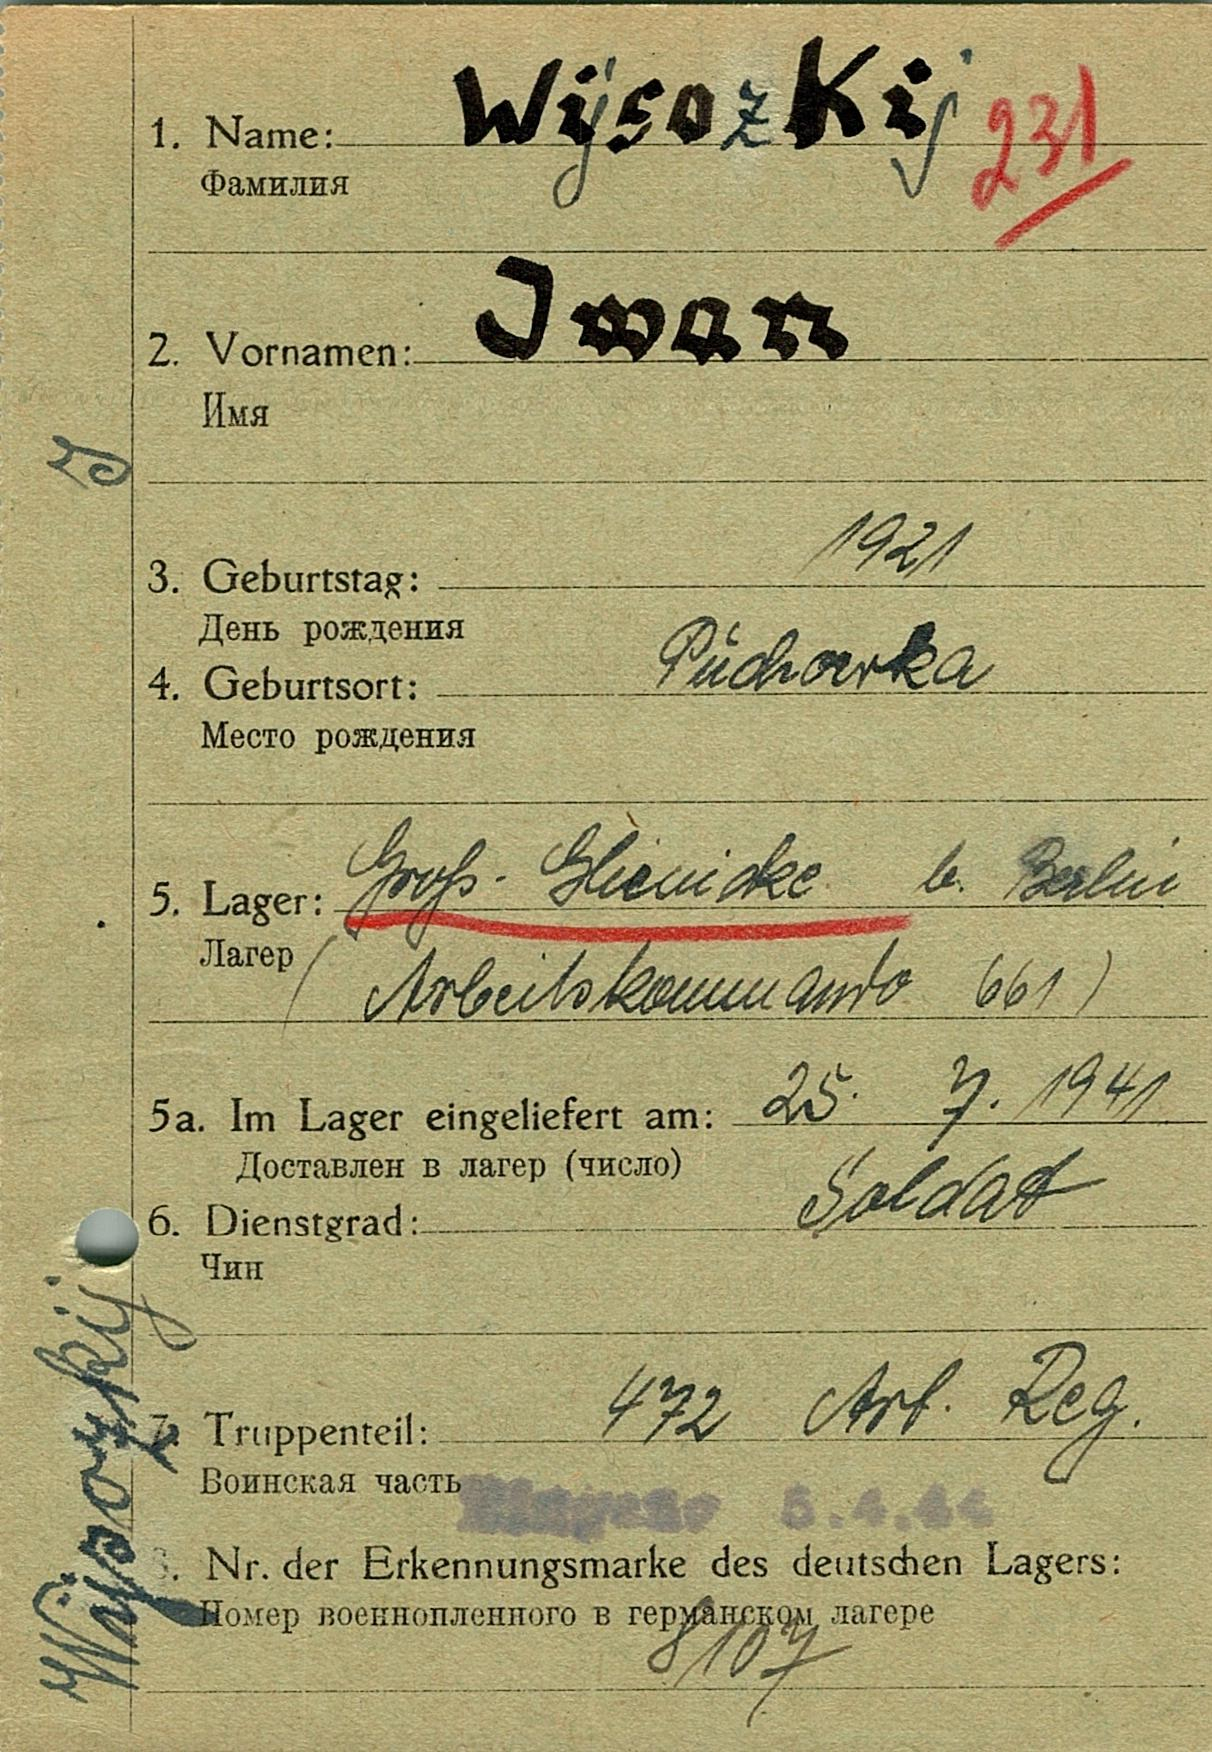 1. Name: Wysozkij 231
Фамилия
2. Vornamen: Iwan
Имя
3. Geburtstag: 1921
День рождения
4. Geburtsort: Puchowka
Место рождения
5. Lager: Groß-Glienicke b. Berlin
Лагер ( Arbeitskommando 661 )
5a. Im Lager eingeliefert am: 25. 7. 1941
Доставлен в лагер (число)
6. Dienstgrad: Soldat
Чин
7. Truppenteil: 472 Art. Reg.
Воинская часть
5.4.44
8. Nr. der Erkennungsmarke des deutschen Lagers:
Номер военнопленного в германском лагере
8107
Wysozkij